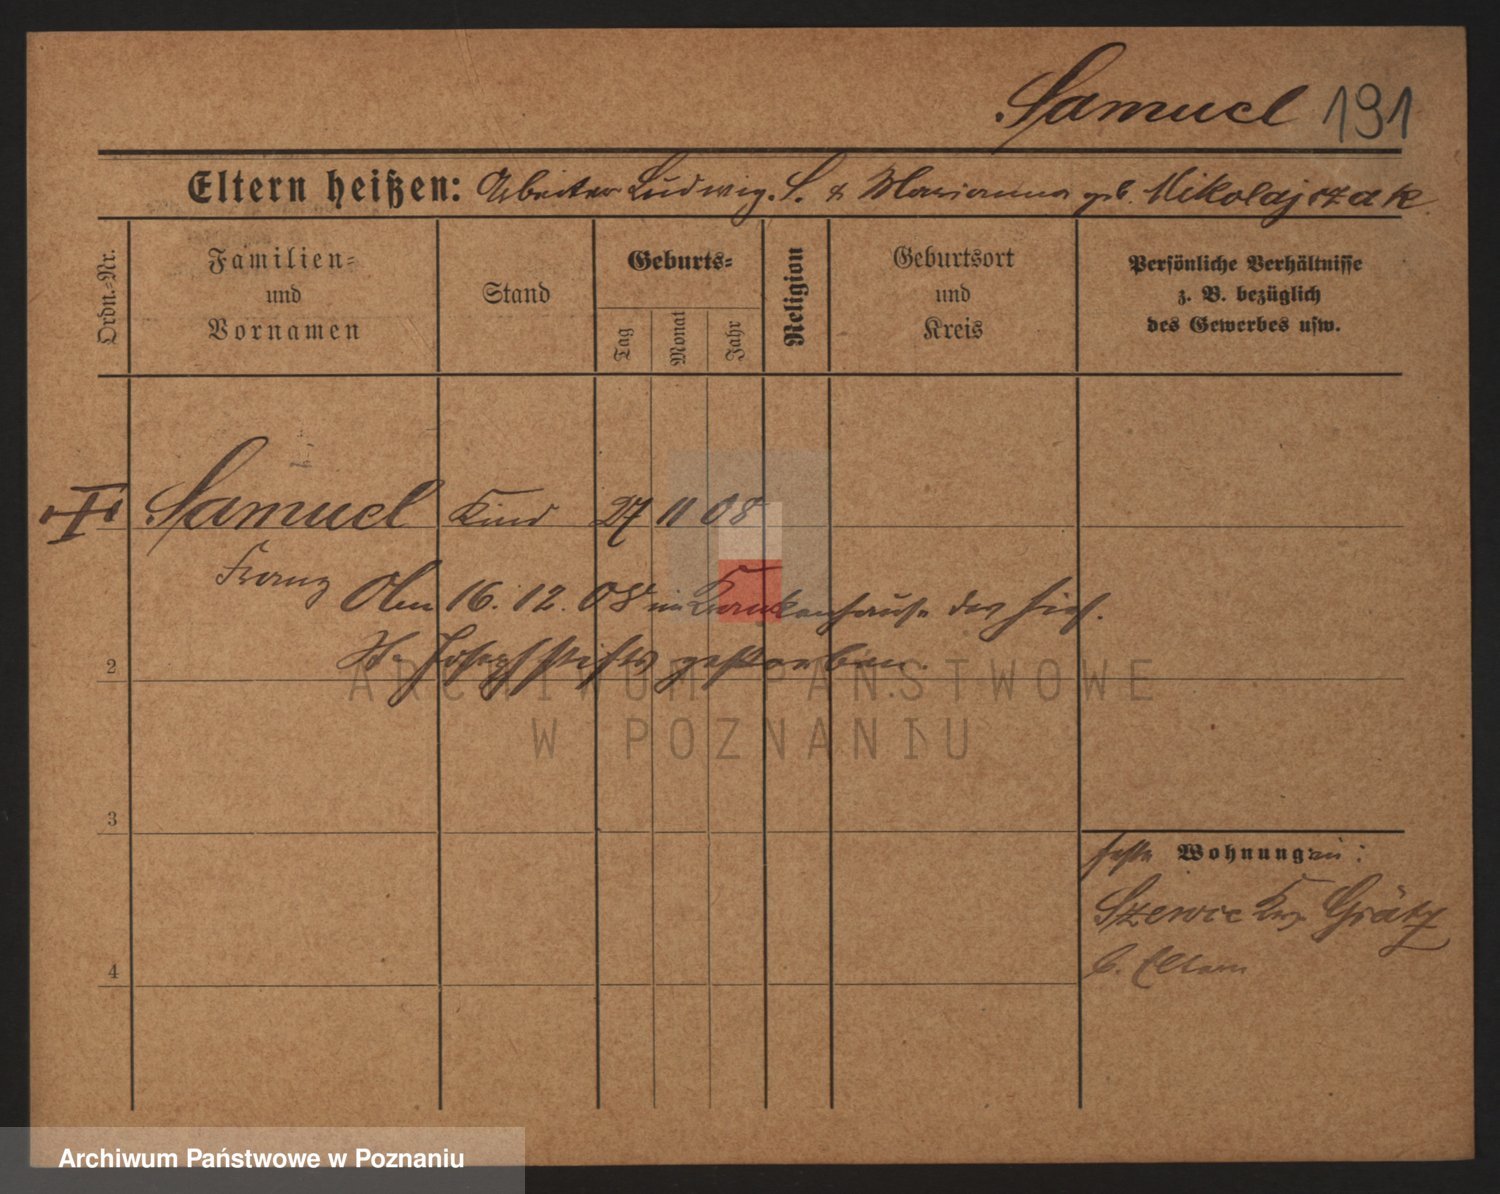 Samuel 191
Eltern heißen: Arbeiter Ludwig S. & Marianna geb. Mikolajczak
Ordn.-Nr.
Familien-
und
Vornamen
Stand
Geburts-
Tag
Monat
Jahr
Religion
Geburtsort
und
Kreis
Persönliche Verhältnisse
z. B. bezüglich
des Gewerbes usw.
Samuel Kind 27 11 08
Franz
Am 16. 12. 08 im Krankenhause des hies.
St. Josephstifts gestorben.
2
ARCHIWUM PAŃSTWOWE
W POZNANIU
3
feste Wohnung in:
Szewce Krs. Grätz
4
b. Eltern
Archiwum Państwowe w Poznaniu